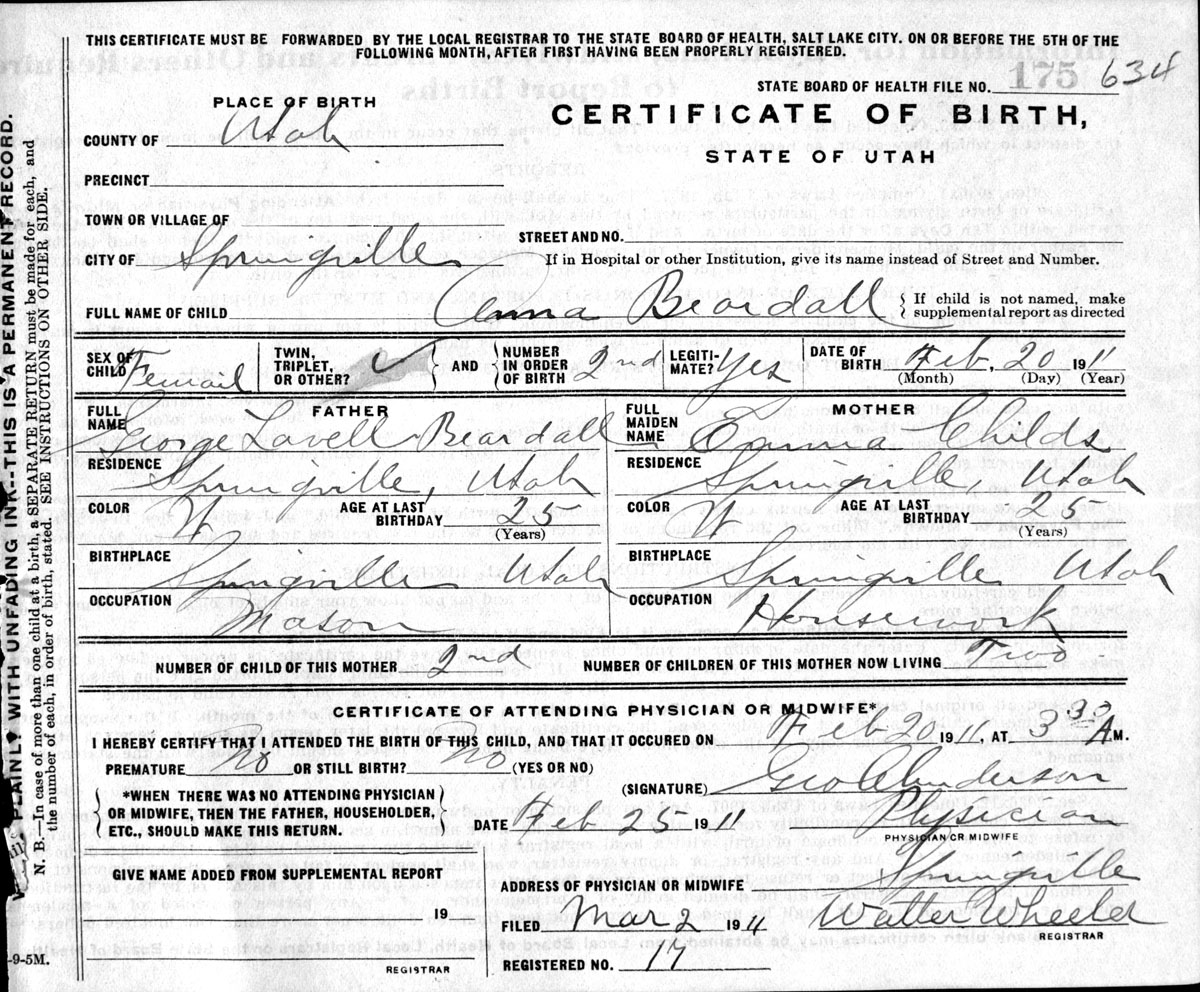 THIS CERTIFICATE MUST BE FORWARDED BY THE LOCAL REGISTRAR TO THE STATE BOARD OF HEALTH, SALT LAKE CITY. ON OR BEFORE THE 5TH OF THE
FOLLOWING MONTH, AFTER FIRST HAVING BEEN PROPERLY REGISTERED.
STATE BOARD OF HEALTH FILE NO. 175 634
PLACE OF BIRTH
CERTIFICATE OF BIRTH,
STATE OF UTAH
COUNTY OF Utah
PRECINCT
TOWN OR VILLAGE OF
STREET AND NO.
CITY OF Springville
If in Hospital or other Institution, give its name instead of Street and Number.
FULL NAME OF CHILD Anna Beardall
If child is not named, make
supplemental report as directed
SEX OF CHILD Femail
TWIN, TRIPLET, OR OTHER?
AND
NUMBER IN ORDER OF BIRTH 2nd
LEGITIMATE? Yes
DATE OF BIRTH Feb. 20 1911
(Month) (Day) (Year)
FATHER
FULL NAME George Lavell Beardall
RESIDENCE Springville, Utah
COLOR W
AGE AT LAST BIRTHDAY 25
(Years)
BIRTHPLACE Springville Utah
OCCUPATION Mason
MOTHER
FULL MAIDEN NAME Emma Childs
RESIDENCE Springville, Utah
COLOR W
AGE AT LAST BIRTHDAY 25
(Years)
BIRTHPLACE Springville Utah
OCCUPATION Housework
NUMBER OF CHILD OF THIS MOTHER 2nd NUMBER OF CHILDREN OF THIS MOTHER NOW LIVING Two
CERTIFICATE OF ATTENDING PHYSICIAN OR MIDWIFE*
I HEREBY CERTIFY THAT I ATTENDED THE BIRTH OF THIS CHILD, AND THAT IT OCCURED ON Feb 20 1911, AT 3 30 A M.
PREMATURE No OR STILL BIRTH? No (YES OR NO)
(SIGNATURE) Geo Anderson
*WHEN THERE WAS NO ATTENDING PHYSICIAN
OR MIDWIFE, THEN THE FATHER, HOUSEHOLDER,
ETC., SHOULD MAKE THIS RETURN.
DATE Feb 25 1911 Physician
PHYSICIAN OR MIDWIFE
GIVE NAME ADDED FROM SUPPLEMENTAL REPORT
ADDRESS OF PHYSICIAN OR MIDWIFE Springville
19
FILED Mar 2 1911 Walter Wheeler
REGISTRAR
REGISTRAR
REGISTERED NO. 17
-9-5M.
PLAINLY WITH UNFADING INK--THIS IS A PERMANENT RECORD.
N. B. In case of more than one child at a birth, a SEPARATE RETURN must be made for each, and
the number of each, in order of birth, stated. SEE INSTRUCTIONS ON OTHER SIDE.